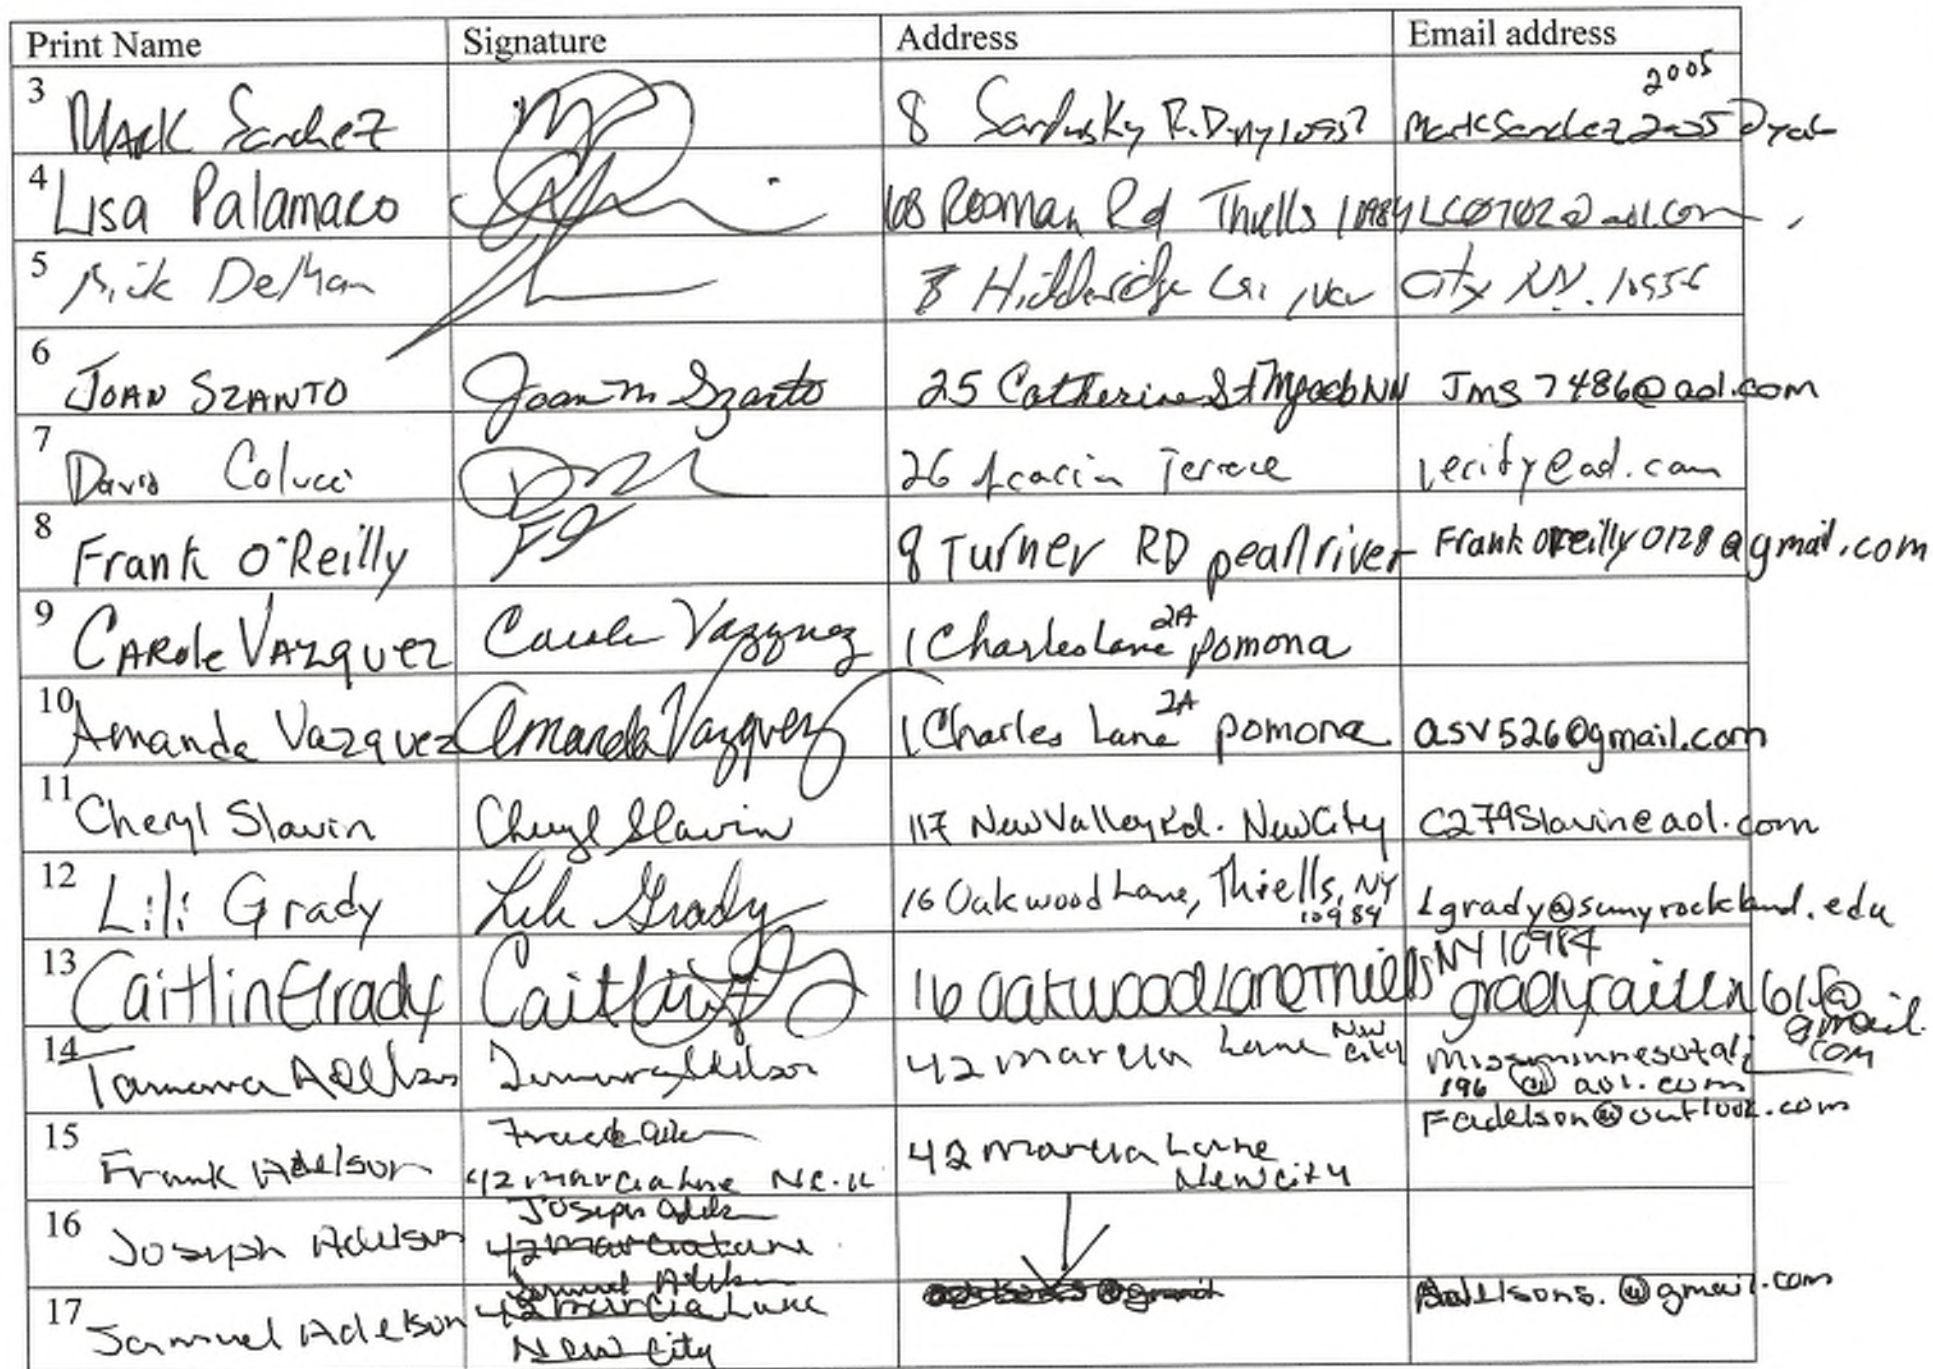 Print Name Signature Address Email address
3 Mark Sanchez 8 Sandusky R.D ny 2005
4 Lisa Palamaco 168 Rosman Rd Thiells 10984 LCO7102@aol.com
5 City NY. 10956
6 Joan Szanto Joan M Szanto 25 Catherine St Nyack NY Jms7486@aol.com
7 David Colucci 26 Acacia Terrace verity@aol.com
8 Frank O'Reilly 8 Turner RD pearl river Frankoreilly0128@gmail.com
9 Carole Vazquez Carole Vazquez 1 Charles Lane 2A pomona
10 Amanda Vazquez Amanda Vazquez 1 Charles Lane 2A pomona asv526@gmail.com
11 Cheryl Slavin Cheryl Slavin 117 New Valley Rd. New City C279Slavin@aol.com
12 Lili Grady Lili Grady 16 Oakwood Lane, Thiells, NY 10984 Lgrady@sunyrockland.edu
13 Caitlin Grady Caitlin 16 Oakwood Lane Thiells NY 10984 gradycaitlin615@
gmail.
com
14 Tamara Adelson 42 Marcia Lane New City Missminnesota
196 @ aol.com
15 Frank Adelson 42 Marcia Lane 42 Marcia Lane Fadelson@outlook.com
New City
16 Joseph Adelson Joseph
42 Marcia Lane
17 Samuel Adelson Samuel Adelson Adelsons.@gmail.com
42 Marcia Lane
New City